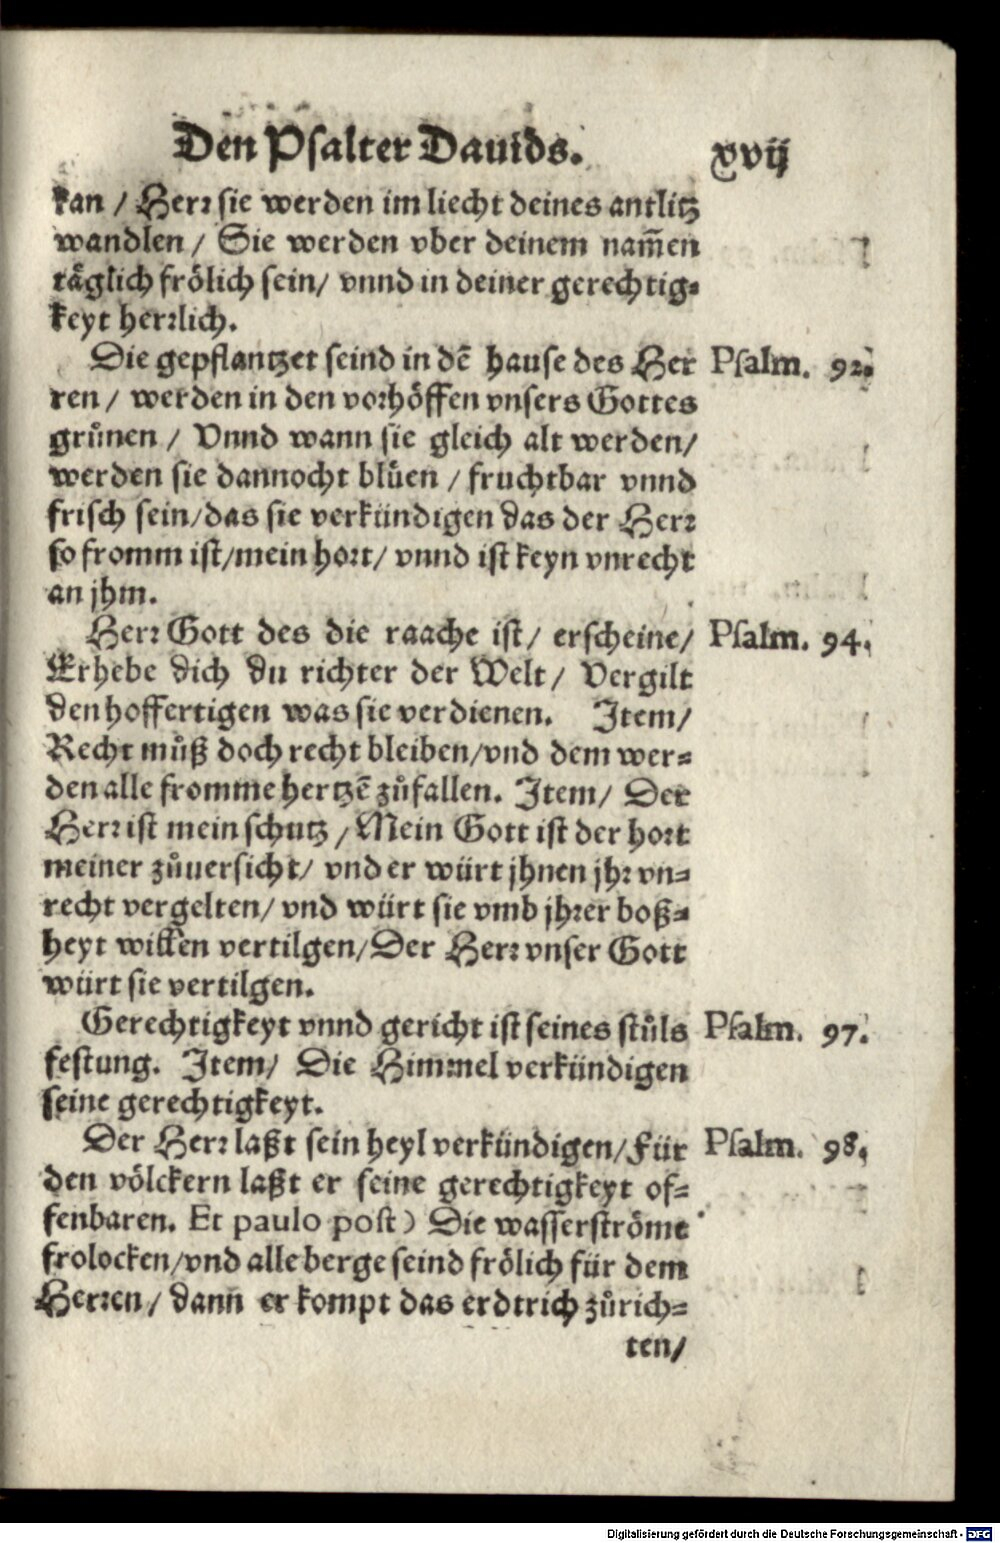 Den Psalter Dauids. xvij
kan / Herr sie werden im liecht deines antlitz
wandlen / Sie werden vber deinem nam̄en
täglich frölich sein/ vnnd in deiner gerechtig-
keyt herrlich.
Die gepflantzet seind in dē hause des Her Psalm. 92.
ren / werden in den vorhöffen vnsers Gottes
grůnen / Vnnd wann sie gleich alt werden/
werden sie dannocht blůen / fruchtbar vnnd
frisch sein/das sie verkündigen das der Herr
so fromm ist/mein hort/ vnnd ist keyn vnrecht
an jhm.
Herr Gott des die raache ist/ erscheine/ Psalm. 94.
Erhebe dich du richter der Welt/ Vergilt
den hoffertigen was sie verdienen. Item/
Recht můß doch recht bleiben/vnd dem wer-
den alle fromme hertzē zůfallen. Item/ Der
Herr ist mein schutz / Mein Gott ist der hort
meiner zůuersicht/ vnd er würt jhnen jhr vn-
recht vergelten/ vnd würt sie vmb jhrer boß-
heyt willen vertilgen/Der Herr vnser Gott
würt sie vertilgen.
Gerechtigkeyt vnnd gericht ist seines stůls Psalm. 97.
festung. Item/ Die Himmel verkündigen
seine gerechtigkeyt.
Der Herr laßt sein heyl verkündigen/Für Psalm. 98.
den völckern laßt er seine gerechtigkeyt of-
fenbaren. Et paulo post) Die wasserströme
frolocken/vnd alle berge seind frölich für dem
Herren/ dann̄ er kompt das erdtrich zůrich-
ten/
Digitalisierung gefördert durch die Deutsche Forschungsgemeinschaft - DFG